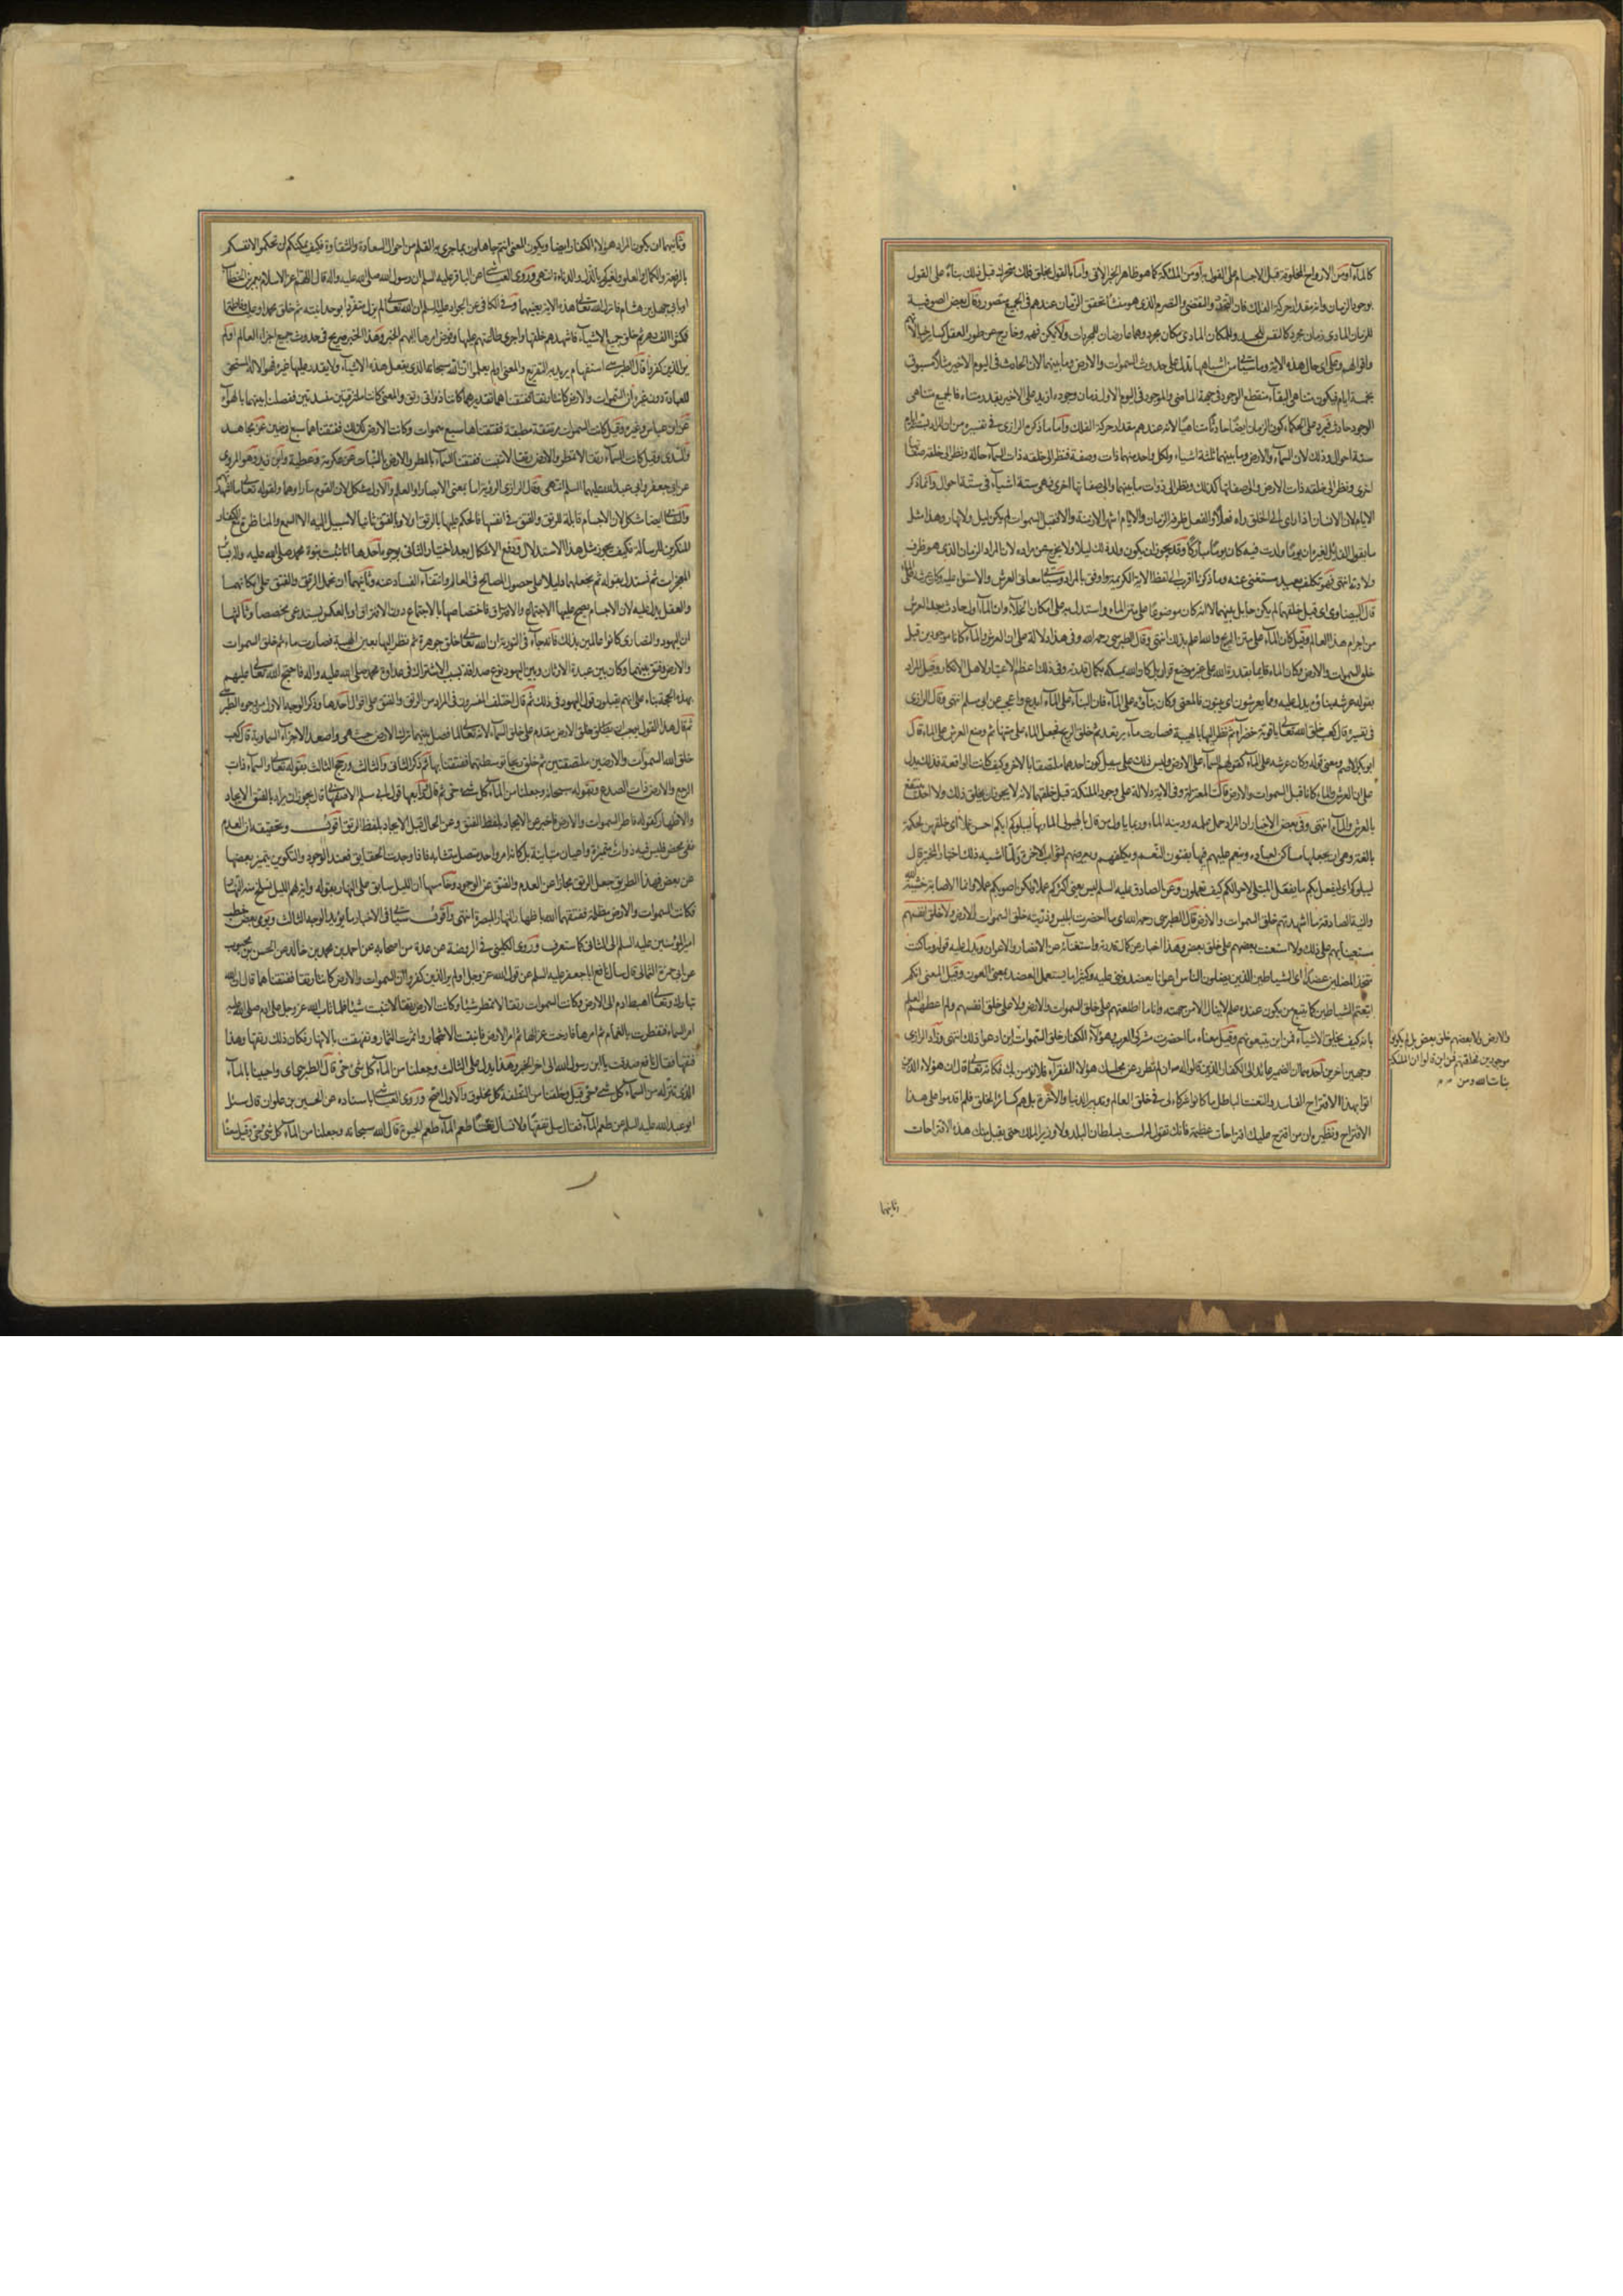 كالماء او من الارواح المخلوقة قبل الاجسام على القول به او من الملئكة كما هو ظاهر الخبر الاتى واما بالقول بخلق فلك متحرك قبل ذلك بناء على القول
بوجود الزمان وانه مقدار حركة الفلك فان التجدد والتقضى والتصرم الذى هو منشأ تحقق الزمان عندهم فى الجميع متصور وقال بعض الصوفية
للزمان المادى زمان مجرد كالنفس للجسد وللمكان المادى مكان مجرد وهما عارضان للمجردات ولا يمكن فهمه وخارج عن طور العقل كساير خيالاتهم
واقوالهم وعلى اى حال هذه الاية وما سيأتى من اشباهها تدل على حدوث السموات والارض وما بينهما لان الحادث فى اليوم الاخير مثلا مسبوق
بخمسة ايام فيكون متناهى البقاء منقطع الوجود فى جهة الماضى والموجود فى اليوم الاول زمان وجوده ازيد على الاخير بقدر متناه فالجميع متناهى
الوجود حادث فيرد على الحكماء كون الزمان ايضا حادثا متناهيا لانه عندهم مقدار حركة الفلك واما ما ذكره الرازى فى تفسيره من ان المراد بستة ايام
ستة احوال وذلك لان السماء والارض وما بينهما ثلثة اشياء ولكل واحد منهما ذات وصفة فنظرا الى خلقه ذات السماء حالة ونظرا الى خلقه صفاتها
اخرى ونظرا الى خلقه ذات الارض والى صفاتها كذلك ونظرا الى ذوات ما بينهما والى صفاتها اخرى فهى ستة اشياء فى ستة احوال وانما ذكر
الايام لان الانسان اذا راى الى الخلق راه فعلا والفعل ظرفه الزمان والايام اشهر الازمنة والا فقبل السموات لم يكن ليل ولا نهار وهذا مثل
ما يقول القائل لغيره ان يوما ولدت فيه كان يوما مباركا وقد يجوز ان يكون ولد ذلك ليلا ولا يخرج عن مراده لان المراد الزمان الذى هو ظرف
ولادته انتهى فهو تكلف بعيد مستغنى عنه وما ذكرنا اقرب الى لفظ الاية الكريمة واوفق بالمراد وسيأتى معانى العرش والاستواء عليه وكان عرشه على الماء
قال البيضاوى اى قبل خلقهما لم يكن حايل بينهما لا انه كان موضوعا على متن الماء واستدل به على امكان الخلاء وان الماء اول حادث بعد العرش
من اجرام هذا العالم وقيل كان الماء على متن الريح والله اعلم بذلك انتهى وقال الطبرسى رحمه الله وفى هذا دلالة على ان العرش والماء كانا موجودين قبل
خلق السموات والارض وكان الماء قايما بقدرة الله على غير موضع قرار بل كان الله يمسكه بكمال قدرته وفى ذلك اعظم الاعتبار لاهل الانكار وقيل المراد
بقوله عرشه بناؤه يدل عليه ومما يعرشون اى يبنون فالمعنى وكان بناؤه على الماء فان البناء على الماء ابدع واعجب عن ابى مسلم انتهى وقال الرازى
فى تفسيره قال كعب خلق الله تعالى ياقوتة خضراء ثم نظر اليها بالهيبة فصارت ماء يرتعد ثم خلق الريح فجعل الماء على متنها ثم وضع العرش على الماء قال
ابو بكر الاصم ومعنى قوله وكان عرشه على الماء كقولهم السماء على الارض وليس ذلك على سبيل كون احدهما ملتصقا بالاخر وكيف كانت الواقعة فذلك يدل
على ان العرش والماء كانا قبل السموات والارض قالت المعتزلة وفى الاية دلالة على وجود الملئكة قبل خلقهما لانه لا يجوز ان يخلق ذلك ولا احد ينتفع
بالعرش والماء انتهى وفى بعض الاخبار ان المراد حمل علمه ودينه الماء وربما ياول من قال بالهيولى الماء بها ليبلوكم ايكم احسن عملا اى خلقهن لحكمة
بالغة وهى ان يجعلها مساكن لعباده وينعم عليهم فيها بفنون النعم ويكلفهم ويعرضهم لثواب الاخرة ولما اشبه ذلك اختبار المختبر قال
ليبلوكم اى ليفعل بكم ما يفعل المبتلى لاحوالكم كيف تعملون وعن الصادق عليه السلم ليس يعنى اكثركم عملا ولكن اصوبكم عملا وانما الاصابة خشية الله
والنية الصادقة ما اشهدتهم خلق السموات والارض قال الطبرسى رحمه الله اى ما احضرت ابليس وذريته خلق السموات والارض ولا خلق انفسهم
مستعينا بهم على ذلك ولا استعنت ببعضهم على خلق بعض وهذا اخبار عن كمال قدرته واستغنائه عن الانصار والاعوان ويدل عليه قوله وما كنت
متخذ المضلين عضدا اى الشياطين الذين يضلون الناس اعوانا يعضدوننى عليه وكثيرا ما يستعمل العضد بمعنى العون وقيل المعنى انكم
اتبعتم الشياطين كما يتبع من يكون عنده علم لا ينال الا من جهته وانا ما اطلعتهم على خلق السموات والارض ولا على خلق انفسهم ولم اعطهم العلم
بانه كيف يخلق الاشياء فمن اين يتبعونهم وقيل معناه ما احضرت مشركى العرب وهؤلاء الكفار خلق السموات اين ادعوا ذلك انتهى وزاد الرازى
وجهين اخرين احدهما ان الضمير عائد الى الكفار الذين قالوا له صلى الله عليه واله ان لم تطرد عن مجلسك هؤلاء الفقراء فلا نؤمن بك فكانه تعالى قال ان هؤلاء الذين
اتوا بهذا الاقتراح الفاسد والتعنت الباطل ما كانوا شركاء لى فى خلق العالم وتدبير الدنيا والاخرة بل هم كساير الخلق فلم اقدموا على هذا
الاقتراح ونظيره ان من اقترح عليك اقتراحات عظيمة فانك تقول له لست بسلطان البلد ولا وزير الملك حتى يقبل منك هذه الاقتراحات
والارض ولا بعضهم خلق بعض بل لم يكونوا
موجودين بخلقتهم فمن اين قالوا ان الملئكة
بنات الله ومن
وثانيها
وثانيهما ان يكون المراد هؤلاء الكفار ايضا ويكون المعنى انتم جاهلون بما جرى به القلم من احوال السعادة والشقاوة فكيف يمكنكم ان تحكموا لانفسكم
بالرفعة والكمال والعلو ولغيركم بالذل والدناءة انتهى وروى العياشى عن الباقر عليه السلم ان رسول الله صلى الله عليه واله قال اللهم اعز الاسلام بعمر بن الخطاب
او بابى جهل بن هشام فانزل الله تعالى هذه الاية يعنيهما وفى الكافى عن الجواد عليه السلم ان الله تعالى لم يزل متفردا بوحدانيته ثم خلق محمدا وعليا وفاطمة
فمكثوا الف دهر ثم خلق جميع الاشياء فاشهدهم خلقها واجرى طاعتهم عليها وفوض امرها اليهم الخبر وهذا الخبر صريح فى حدوث جميع اجزاء العالم اولم
ير الذين كفروا قال الطبرسى استفهام يراد به التقريع والمعنى اولم يعلموا ان الله سبحانه الذى يفعل هذه الاشياء ولا يقدر عليها غيره فهو الاله المستحق
للعبادة دون غيره ان السموات والارض كانتا رتقا ففتقناهما تقديره كانتا ذواتى رتق والمعنى كانتا ملتزقتين منسدتين ففصلنا بينهما بالهواء
عن ابن عباس وغيره وقيل كانت السموات مرتتقة مطبقة ففتقناها سبع سموات وكانت الارض كذلك ففتقناهما سبع ارضين عن مجاهد
والسدى وقيل كانت السماء رتقا لا تمطر والارض رتقا لا تنبت ففتقنا السماء بالمطر والارض بالنبات عن عكرمة وعطية وابن زيد وهو المروى
عن ابى جعفر وابى عبد الله عليهما السلم انتهى وقال الرازى الرؤية اما بمعنى الابصار او العلم والاول مشكل لان القوم ما راوهما ولقوله تعالى ما اشهدتهم
والثانى ايضا مشكل لان الاجسام قابلة للرتق والفتق فى انفسها فالحكم عليها بالرتق اولا وبالفتق ثانيا لا سبيل اليه الا السمع والمناظرة مع الكفار
المنكرين للرسالة فكيف يجوز مثل هذا الاستدلال ودفع الاشكال بعد اختيار الثانى بوجوه احدها انا نثبت نبوة محمد صلى الله عليه واله بساير
المعجزات ثم نستدل بقوله ثم نجعلهما دليلا على حصول المصالح فى العالم وانتفاء الفساد عنه وثانيهما ان نحمل الرتق والفتق على امكانهما
والعقل يدل عليه لان الاجسام يصح عليها الاجتماع والافتراق فاختصاصها بالاجتماع دون الافتراق او بالعكس يستدعى مخصصا وثالثها
ان اليهود والنصارى كانوا عالمين بذلك فانه جاء فى التورية ان الله تعالى خلق جوهرة ثم نظر اليها بعين الهيبة فصارت ماء ثم خلق السموات
والارض وفتق بينهما وكان بين عبدة الاوثان وبين اليهود نوع صداقة بسبب الاشتراك فى عداوة محمد صلى الله عليه واله فاحتج الله تعالى عليهم
بهذه الحجة بناء على انهم يقبلون قول اليهود فى ذلك ثم قال اختلف المفسرون فى المراد من الرتق والفتق على اقوال احدها وذكر الوجه الاول من وجوه الطبرسى
ثم قال هذا القول يوجب ان خلق الارض مقدم على خلق السماء لانه تعالى لما فصل بينهما ترك الارض حيث هى واصعد الاجزاء السماوية قال كعب
خلق الله السموات والارضين ملتصقتين ثم خلق ريحا توسطتهما ففتقتا بها ثم ذكر الثانى والثالث ورجح الثالث بقوله تعالى والسماء ذات
الرجع والارض ذات الصدع وبقوله سبحانه وجعلنا من الماء كل شىء حى ثم قال ورابعها قول ابى مسلم الاصفهانى قال يجوز ان يراد بالفتق الايجاد
والاظهار كقوله فاطر السموات والارض فاخبر عن الايجاد بلفظ الفتق وعن الحال قبل الايجاد بلفظ الرتق اقول وتحقيقه ان العدم
نفى محض فليس فيه ذوات متميزة واعيان متباينة بل كانه امر واحد متصل متشابه فاذا وجدت الحقايق فعند الوجود والتكوين يتميز بعضها
عن بعض فبهذا الطريق جعل الرتق مجازا عن العدم والفتق عن الوجود وخامسها ان الليل سابق على النهار بقوله واية لهم الليل نسلخ منه النهار
فكانت السموات والارض مظلمة ففتقهما الله باظهار النهار المبصرة انتهى واقول سيأتى فى الاخبار ما يؤيد الوجه الثالث ويومى بعض خطب
امير المؤمنين عليه السلم الى الثانى كما ستعرف وروى الكلينى فى الروضة عن عدة من اصحابه عن احمد بن محمد بن خالد عن الحسن بن محبوب
عن ابى حمزة الثمالى قال سال نافع ابا جعفر عليه السلم عن قول الله عز وجل اولم ير الذين كفروا ان السموات والارض كانتا رتقا ففتقناهما قال ان الله
تبارك وتعالى اهبط ادم الى الارض وكانت السموات رتقا لا تمطر شيئا وكانت الارض رتقا لا تنبت شيئا فلما تاب الله عز وجل على ادم صلى الله عليه
امر السماء فتقطرت بالغمام ثم امرها فارخت عزاليها ثم امر الارض فانبتت الاشجار واثمرت الثمار وتفهقت بالانهار فكان ذلك رتقها وهذا
فتقها فقال نافع صدقت يا ابن رسول الله الى اخر الخبر وهذا يدل على الثالث وجعلنا من الماء كل شىء حى قال الطبرسى اى واحيينا بالماء
الذى ننزله من السماء كل شىء حى وقيل وخلقنا من النطفة كل مخلوق والاول اصح وروى العياشى باسناده عن الحسين بن علوان قال سئل
ابو عبد الله عليه السلم عن طعم الماء فقال سل تفقها ولا تسال تعنتا طعم الماء طعم الحيوة قال الله سبحانه وجعلنا من الماء كل شىء حى وقيل معناه